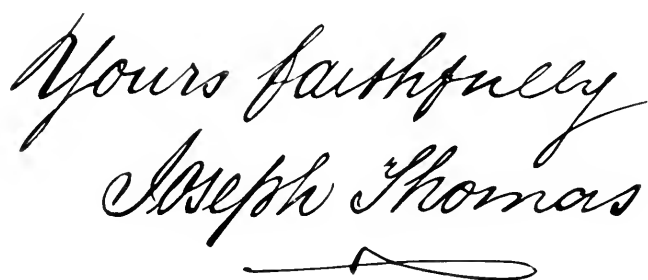 Yours faithfully
Joseph Thomas